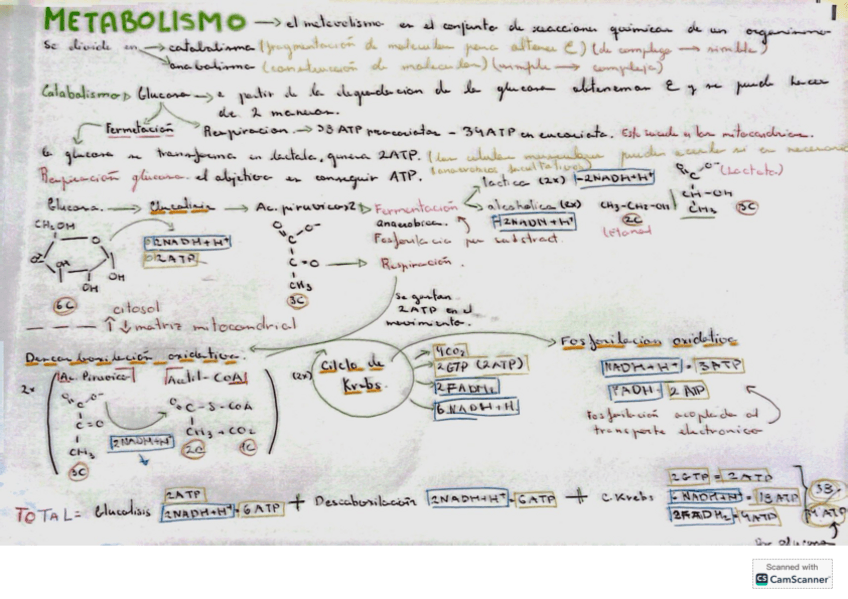 METABOLISMO → el metabolismo es el conjunto de reacciones químicas de un organismo
Se divide en → catabolismo (fragmentación de moléculas para obtener E) (de complejo → simple)
→ anabolismo (construcción de moléculas) (simple → complejo)
Catabolismo Glucosa → a partir de la degradación de la glucosa obtenemos E y se puede hacer
de 2 maneras.
Fermetación Respiración → 38 ATP procariotas - 34ATP en eucariota. mitocondrias.
glucosa se transforma en lactato, genera 2ATP. (las células musculares pueden
Respiración glucosa. el objetivo es conseguir ATP.
láctica (2x) -2NADH+H⁺ (Lactato)
Glucosa → Glucolisis → Ac. pirúvico x2 Fermentación alcohólica (2x) CH₃-CH₂-OH CH-OH
CH₂OH anaerobica. -2NADH+H⁺ 2C CH₃ 3C
Fosforilación por substrat. (etanol)
O 2NADH+H⁺
2ATP C=O → Respiración.
OH CH₃
OH
6C 3C
citosol Se gastan
2ATP en el
↑↓ matriz mitocondrial movimiento.
Descarboxilación oxidativa. Fosforilacion oxidativa
2x Ac. Piruvico Acetil-CoA (2x) Ciclo de Krebs. 4CO₂
2GTP (2ATP) NADH+H⁺ = 3ATP
2FADH₂ FADH 2ATP
C=O C-S-CoA 6NADH+H
2NADH+H⁺ CH₃ + CO₂ Fosforilación acoplada al
CH₃ 2C 1C transporte electronico
3C
TOTAL = Glucolisis 2ATP 2NADH+H⁺ = 6ATP + Descarboxilación 2NADH+H⁺ = 6ATP + C.Krebs 2GTP = 2ATP
6NADH+H = 18ATP 38
2FADH₂ = 4ATP ATP
Scanned with
CS CamScanner